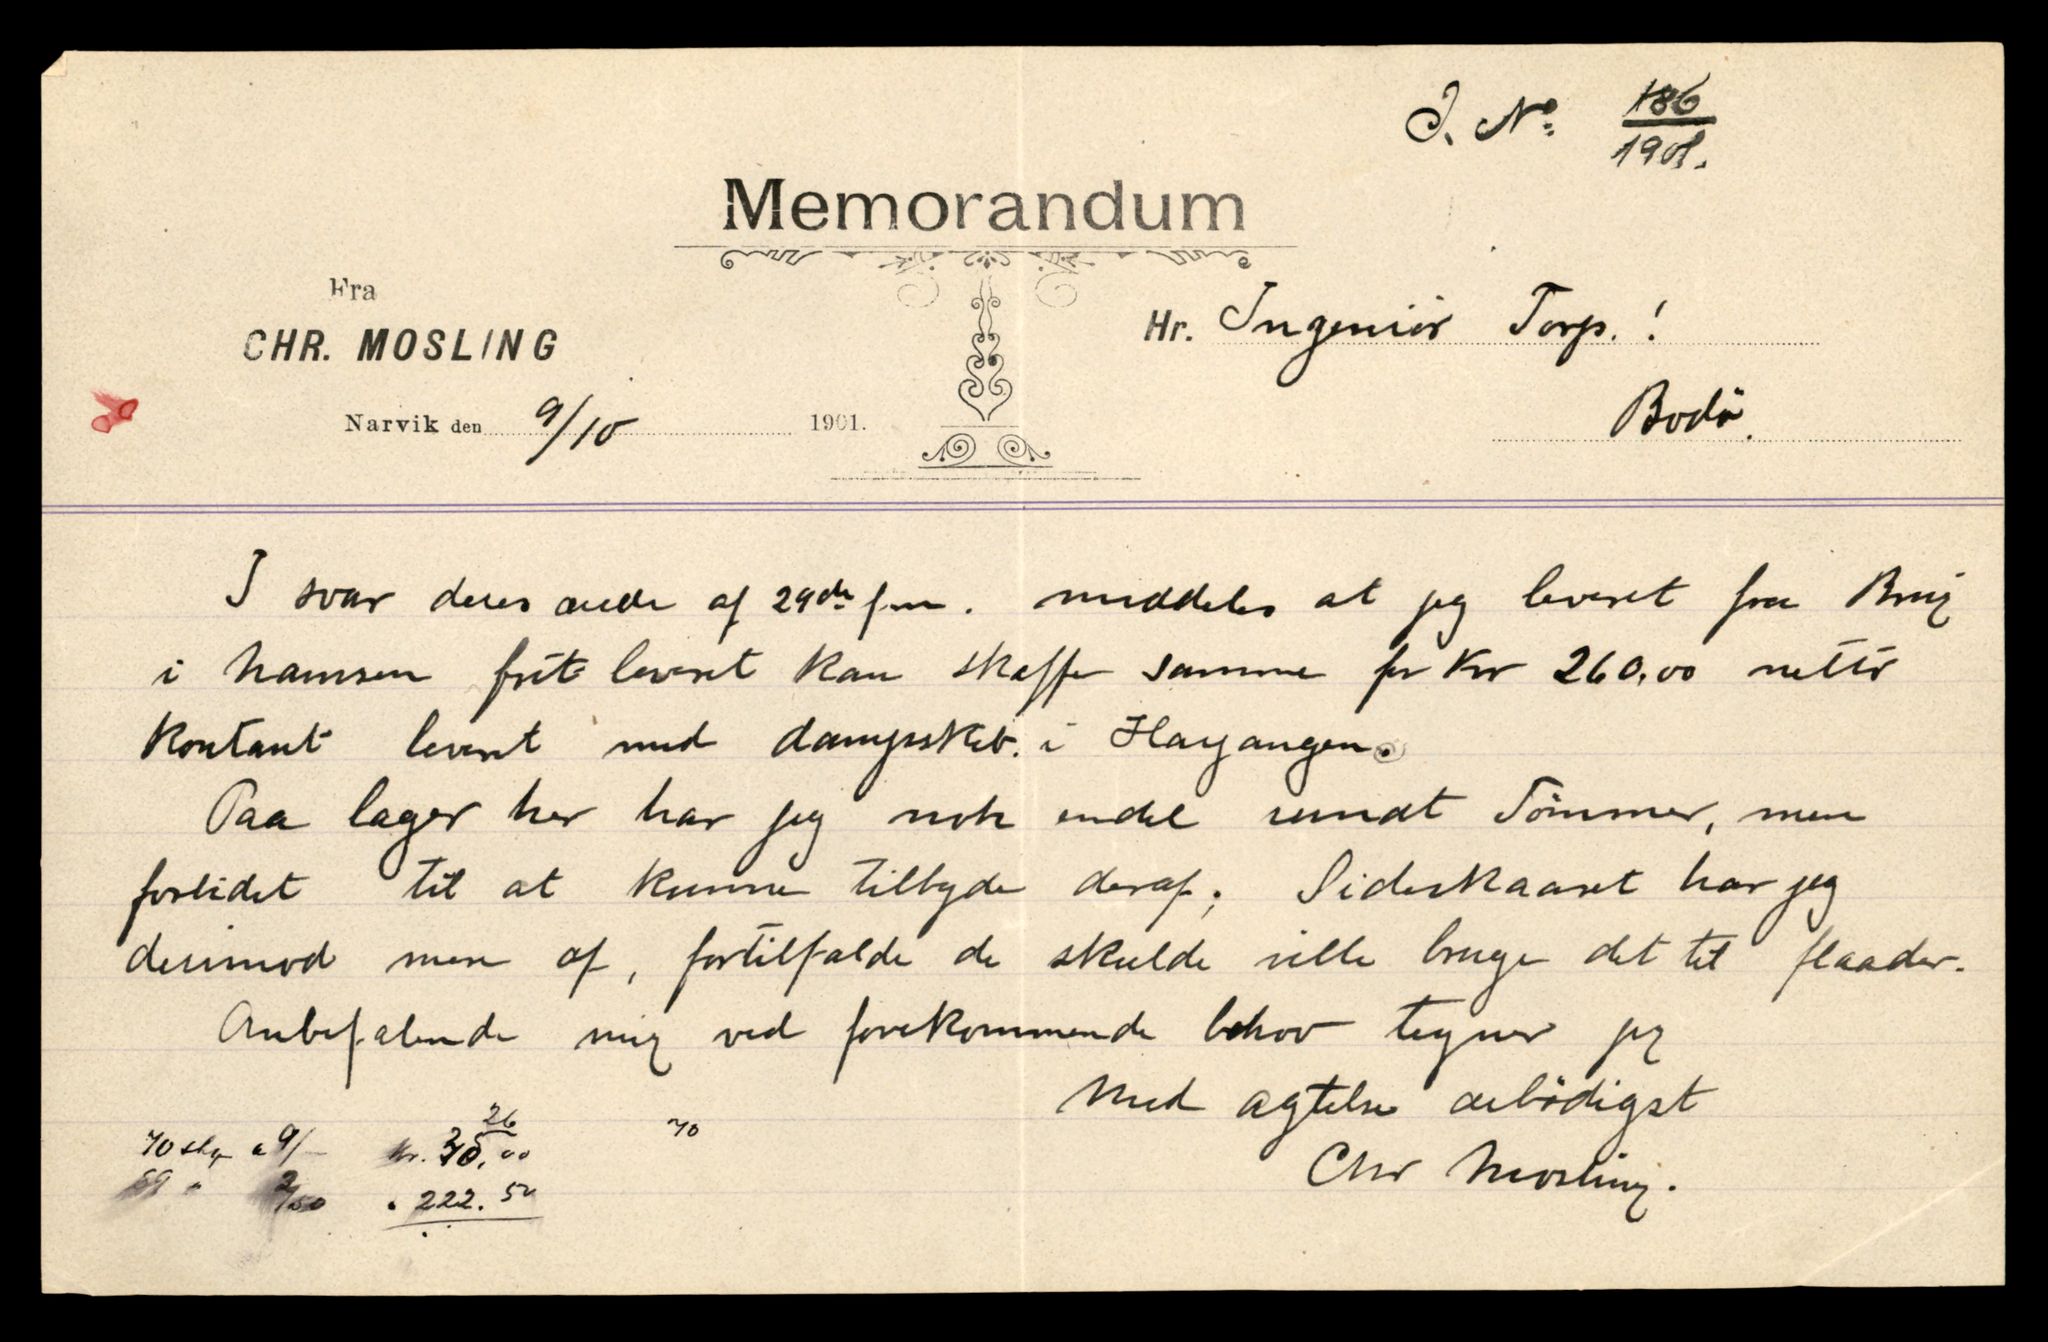 J. No. 186
1901.
Memorandum
Fra
CHR. MOSLING
Narvik den 9/10 1901.
Hr. Ingeniör Torp.!
Bodö.
I svar deres ærede af 29de f.m. meddeles at jeg leveret fra Brug
i Namsen frit leveret kan skaffe samme for Kr 260,00 netto
kontant leveret med dampskib. i
Paa lager her har jeg nok endel rundt Tömmer, men
forlidet til at kunne tilbyde deraf; Sideskaaret har jeg
derimod mere af, fortilfælde de skulde ville bruge det til flaader.
Anbefalende mig ved forekommende behov tegner jeg
Med agtelse ærbödigst
Chr Mosling.
70 a 9/ Kr. 00
2/50 " 222.50
26
70